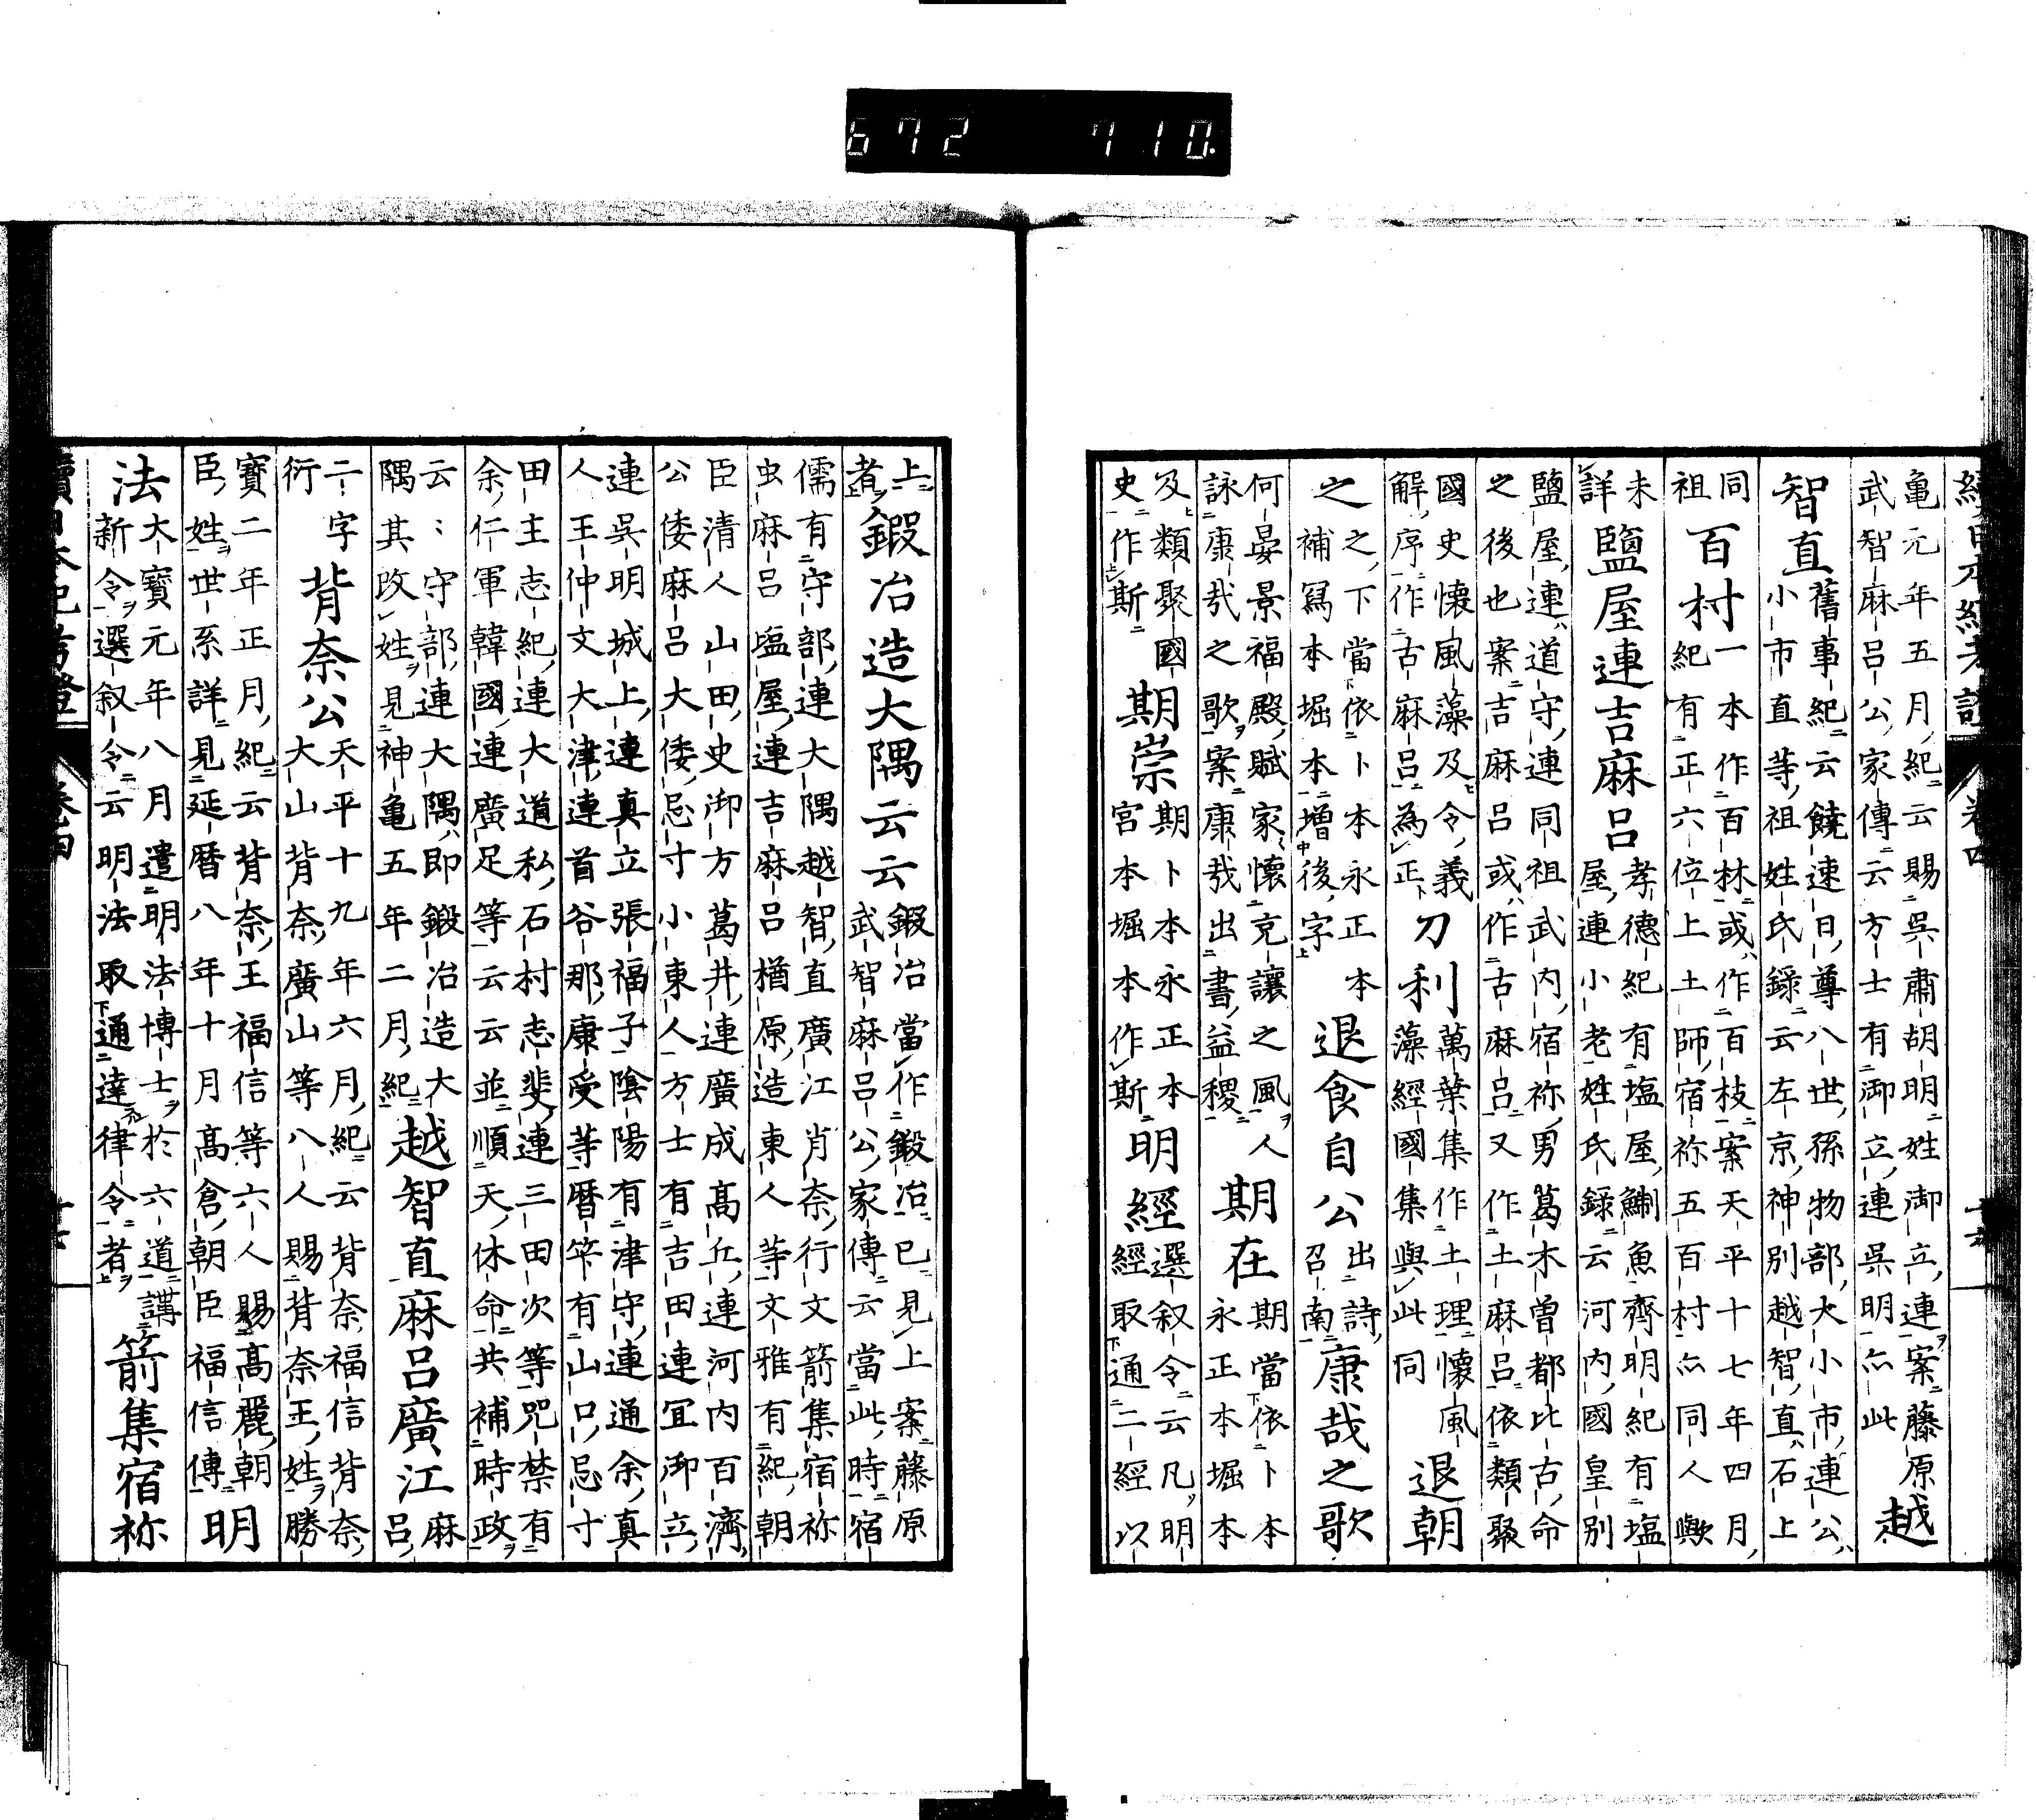 亀元年五月紀云賜呉肅胡明姓御立連案藤原
武智麻呂公家傳云方士有御立連呉明亦此
越
智直
舊事紀云饒速日尊八世孫物部大小市連公
小市直等祖姓氏録云左京神別越智直石上
同
祖
百村
一本作百林或作百枝案天平十七年四月
紀有正六位上土師宿祢五百村亦同人歟
未
詳
鹽屋連吉麻呂
孝德紀有塩屋鯯魚齊明紀有塩
屋連小老姓氏録云河内國皇別
鹽屋連道守連同祖武内宿祢男葛木曽都比古命
之後也案吉麻呂或作古麻呂又作土麻呂依類聚
國史懷風藻及令義
解序作古麻呂為正
刀利
萬葉集作土理懷風
藻經國集與此同
退朝
之
之下當依卜本永正本
補寫本堀本增後字
退食自公
出詩
召南
康哉之歌
何晏景福殿賦家懷克讓之風人
詠康哉之歌案康哉出書益稷
期在
期當依卜本
永正本堀本
及類聚國
史作斯
期崇
期卜本永正本
宮本堀本作斯
明經
選叙令云凡明
經取通二經以
上
者
鍜冶造大隅云云
鍜冶當作鍛冶已見上案藤原
武智麻呂公家傳云當此時宿
儒有守部連大隅越智直廣江肖奈行文箭集宿祢
虫麻呂塩屋連吉麻呂楢原造東人等文雅有紀朝
臣清人山田史御方葛井連廣成高丘連河内百濟
公倭麻呂大倭忌寸小東人方士有吉田連宜御立
連呉明城上連真立張福子陰陽有津守連通余真
人王仲文大津連首谷那康受等暦笇有山口忌寸
田主志紀連大道私石村志斐連三田次等咒禁有
余仁軍韓國連廣足等云云並順天休命共補時政
云〻守部連大隅即鍛冶造大
隅其改姓見神亀五年二月紀
越智直麻呂廣江
麻
呂
二字
衍
背奈公
天平十九年六月紀云背奈福信背奈
大山背奈廣山等八人賜背奈王姓勝
寶二年正月紀云背奈王福信等六人賜高麗朝
臣姓世系詳見延暦八年十月高倉朝臣福信傳
明
法
大寶元年八月遣明法博士於六道講
新令選叙令云明法取通達律令者
箭集宿祢
續日本紀考證 卷四
672 710